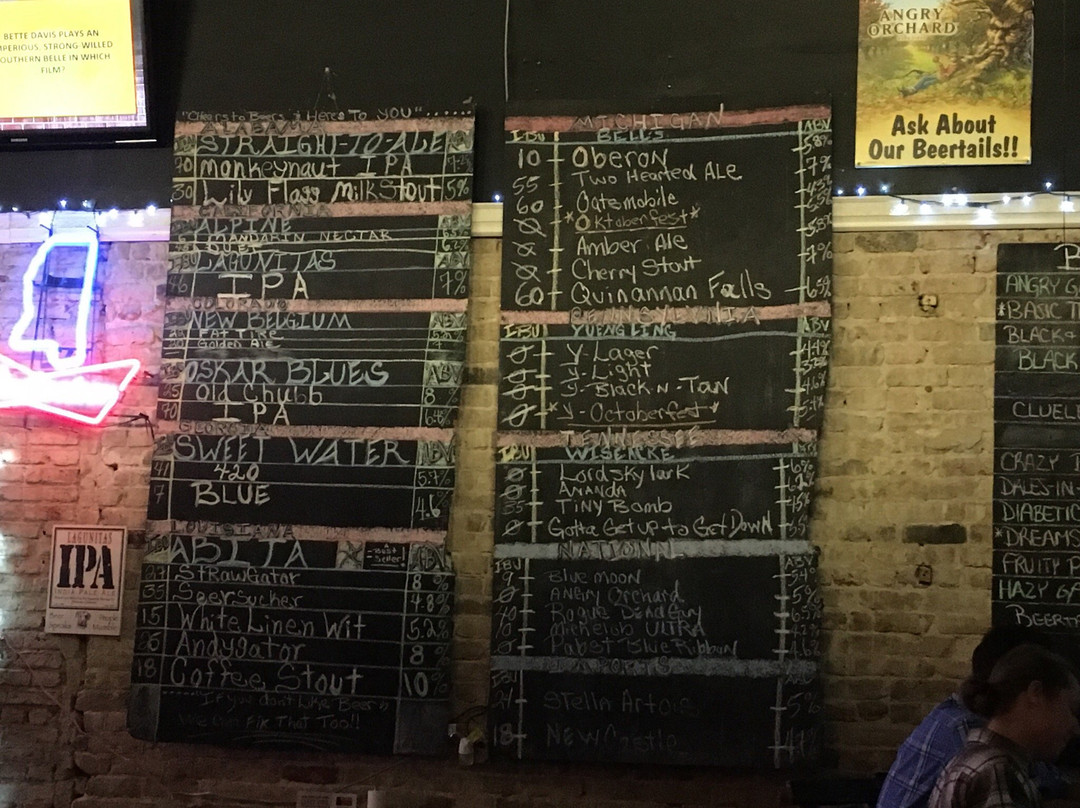 BETTE DAVIS PLAYS AN
IMPERIOUS, STRONG-WILLED
SOUTHERN BELLE IN WHICH
FILM?
ANGRY
ORCHARD
Ask About
Our Beertails!!
LAGUNITAS
IPA
"Cheers to Beers & Heres To YOU"
ALABAMA
STRAIGHT-TO-ALE
monkeynaut IPA
30 Lily Flagg Milk Stout 5%
CALIFORNIA
ALPINE
MANDARIN NECTAR
LAGUNITAS
IPA 7%
COLORADO
NEW BELGIUM
FAT TIRE
Golden Ale
OSKAR BLUES ABV
Old Chubb 8
IPA
GEORGIA
SWEET WATER
41 420
7 BLUE 4.6
LOUISIANA
ABITA
StrawGator 8%
Seersucker 4.8%
15 White Linen Wit 5.2%
Andygator 8%
18 Coffee Stout 10%
"If you don't Like Beer"
We Can Fix That Too!!
MICHIGAN
IBU BELLS ABV
10 Oberon
55 Two Hearted ALe 7%
60 Oatemobile
*Oktoberfest*
Amber Ale
Cherry Stout 7%
60 Quinannan Falls
PENNSYLVANIA
IBU YUENGLING ABV
Y-Lager 4.4%
Y-Light
Y-Black-N-Tan
*Y-Octoberfest*
TENNESSEE
IBU WISEACRE
Lord Skylark
ANANDA
35 TiNy Bomb
Gotta Get up to Get DowN
NATIONAL
IBU ABV
9 BLue mooN
ANGry Orchard
Rogue Dead Guy
Michelob ULTRA
Pabst Blue Ribbon
IMPORTS
Stella Artois 5%
18 NEWCastle
ANGRY
*BASIC
BLACK
BLACK
CRAZY
DALES-IN
DIABETIC
*DREAMS
FRUITY
HAZY